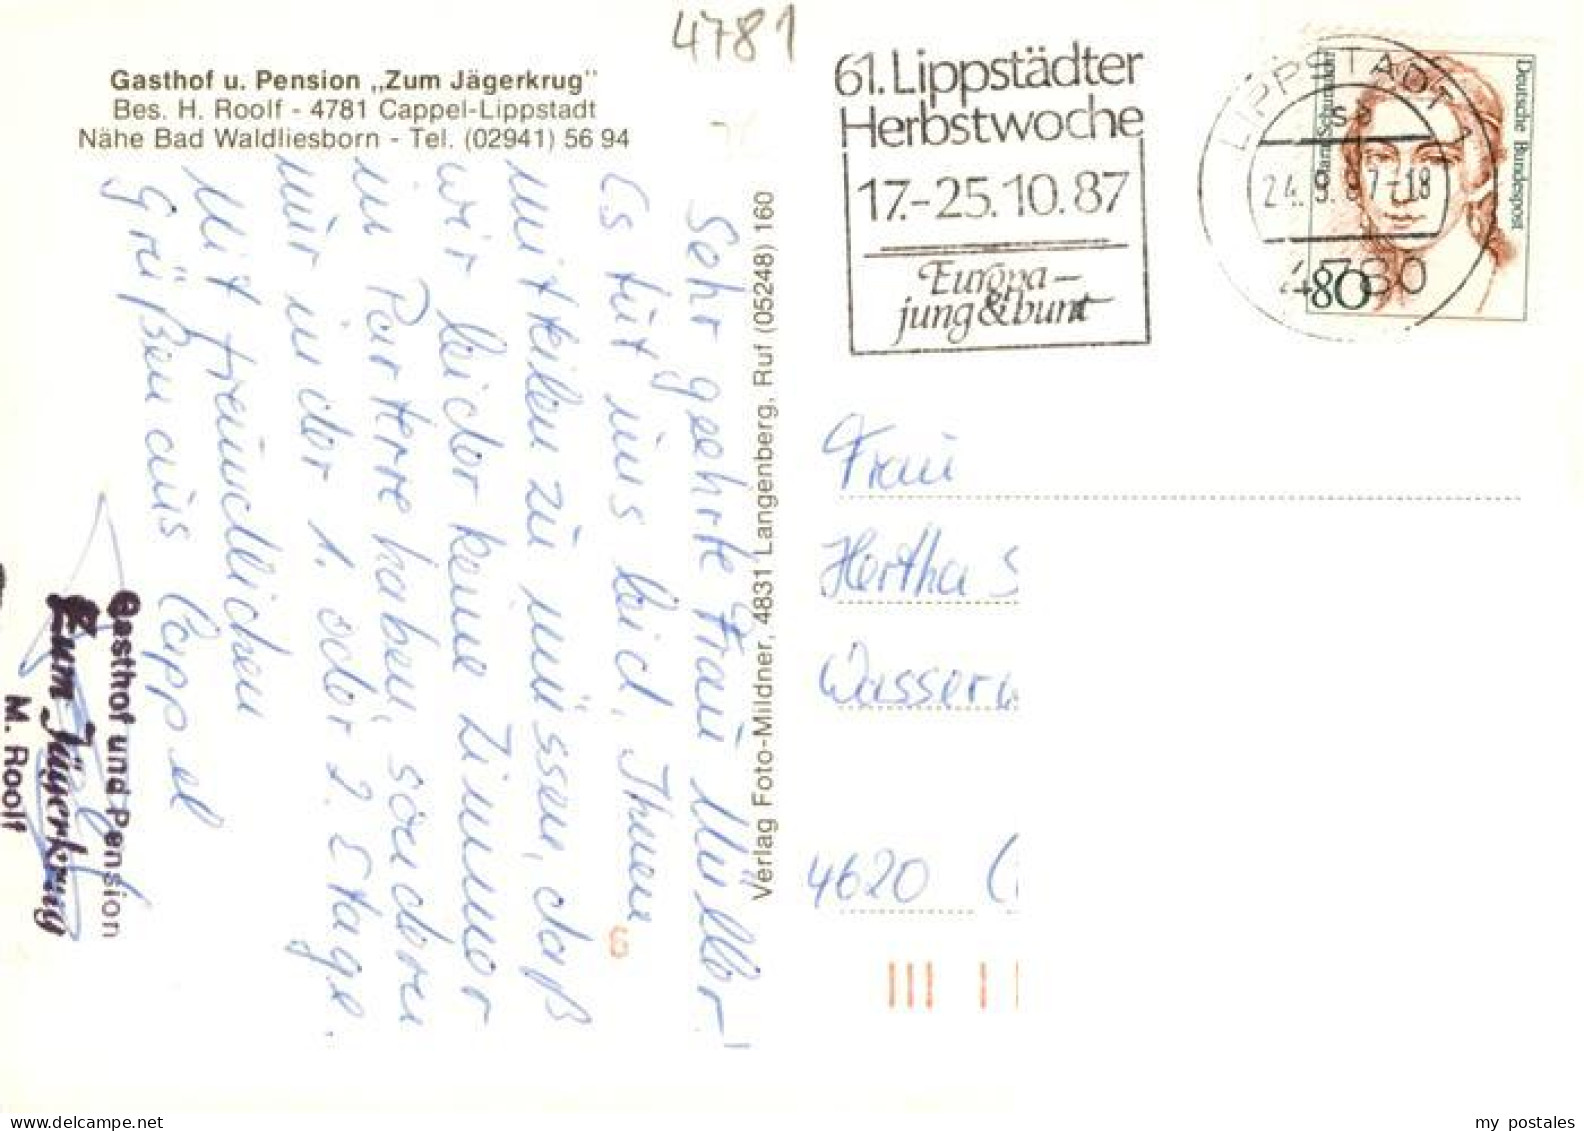 4781
Gasthof u. Pension „Zum Jägerkrug"
Bes. H. Roolf - 4781 Cappel-Lippstadt
Nähe Bad Waldliesborn - Tel. (02941) 56 94
Sehr geehrte Frau Müller
Es tut uns leid, Ihnen
mitteilen zu müssen, daß
wir leider keine Zimmer
in Parterre haben, sondern
nur in der 1. oder 2. Etage.
Mit freundlichen
Grüßen aus Cappel
Gasthof und Pension
Zum Jägerkrug
M. Roolf
Verlag Foto-Mildner, 4831 Langenberg, Ruf (05248) 160
61. Lippstädter
Herbstwoche
17.-25.10.87
Europa-
jung & bunt
LIPPSTADT 1
sa
24.9.87-18
4780
Clara Schumann
Deutsche Bundespost
80
Frau
Hertha S
Wasser
4620
G
my postales